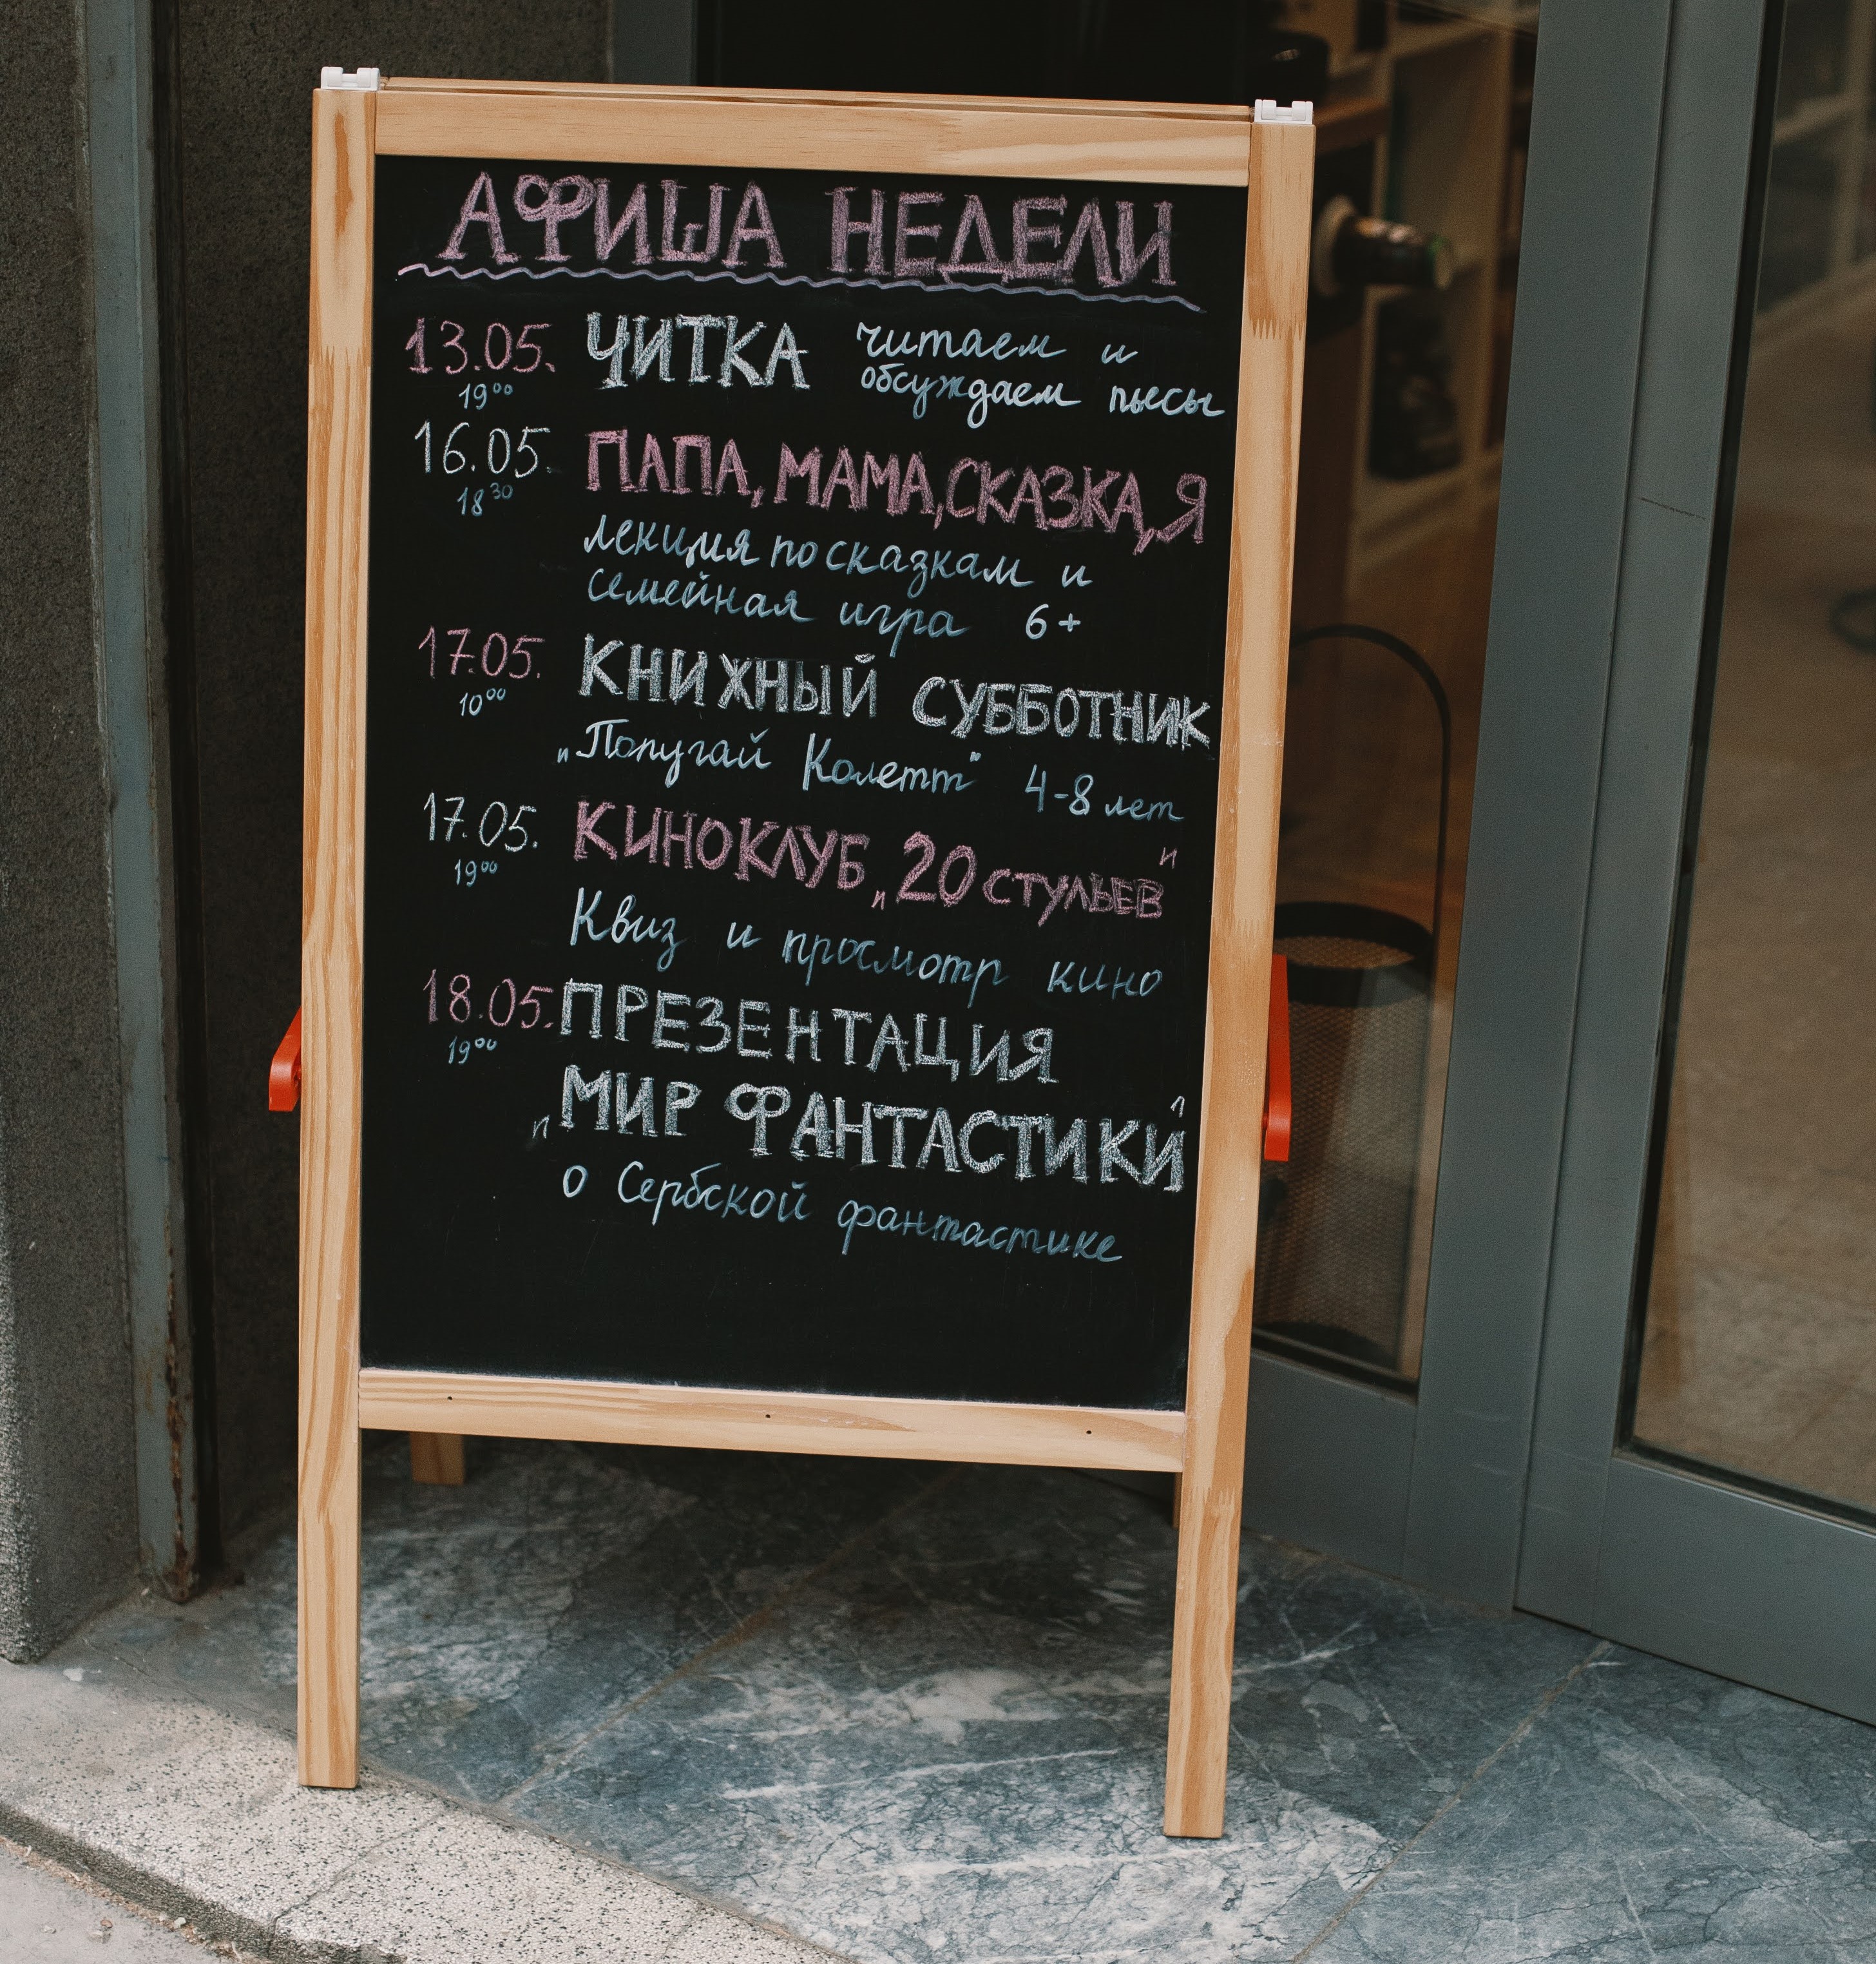 АФИША НЕДЕЛИ
13.05. ЧИТКА читаем и
19⁰⁰ обсуждаем пьесы
16.05. ПАПА, МАМА, СКАЗКА, Я
18³⁰
лекция по сказкам и
семейная игра 6+
17.05. КНИЖНЫЙ СУББОТНИК
10⁰⁰
„Попугай Колетт" 4-8 лет
17.05. КИНОКЛУБ „20 СТУЛЬЕВ"
19⁰⁰
Квиз и просмотр кино
18.05. ПРЕЗЕНТАЦИЯ
19⁰⁰
„МИР ФАНТАСТИКИ"
о Сербской фантастике